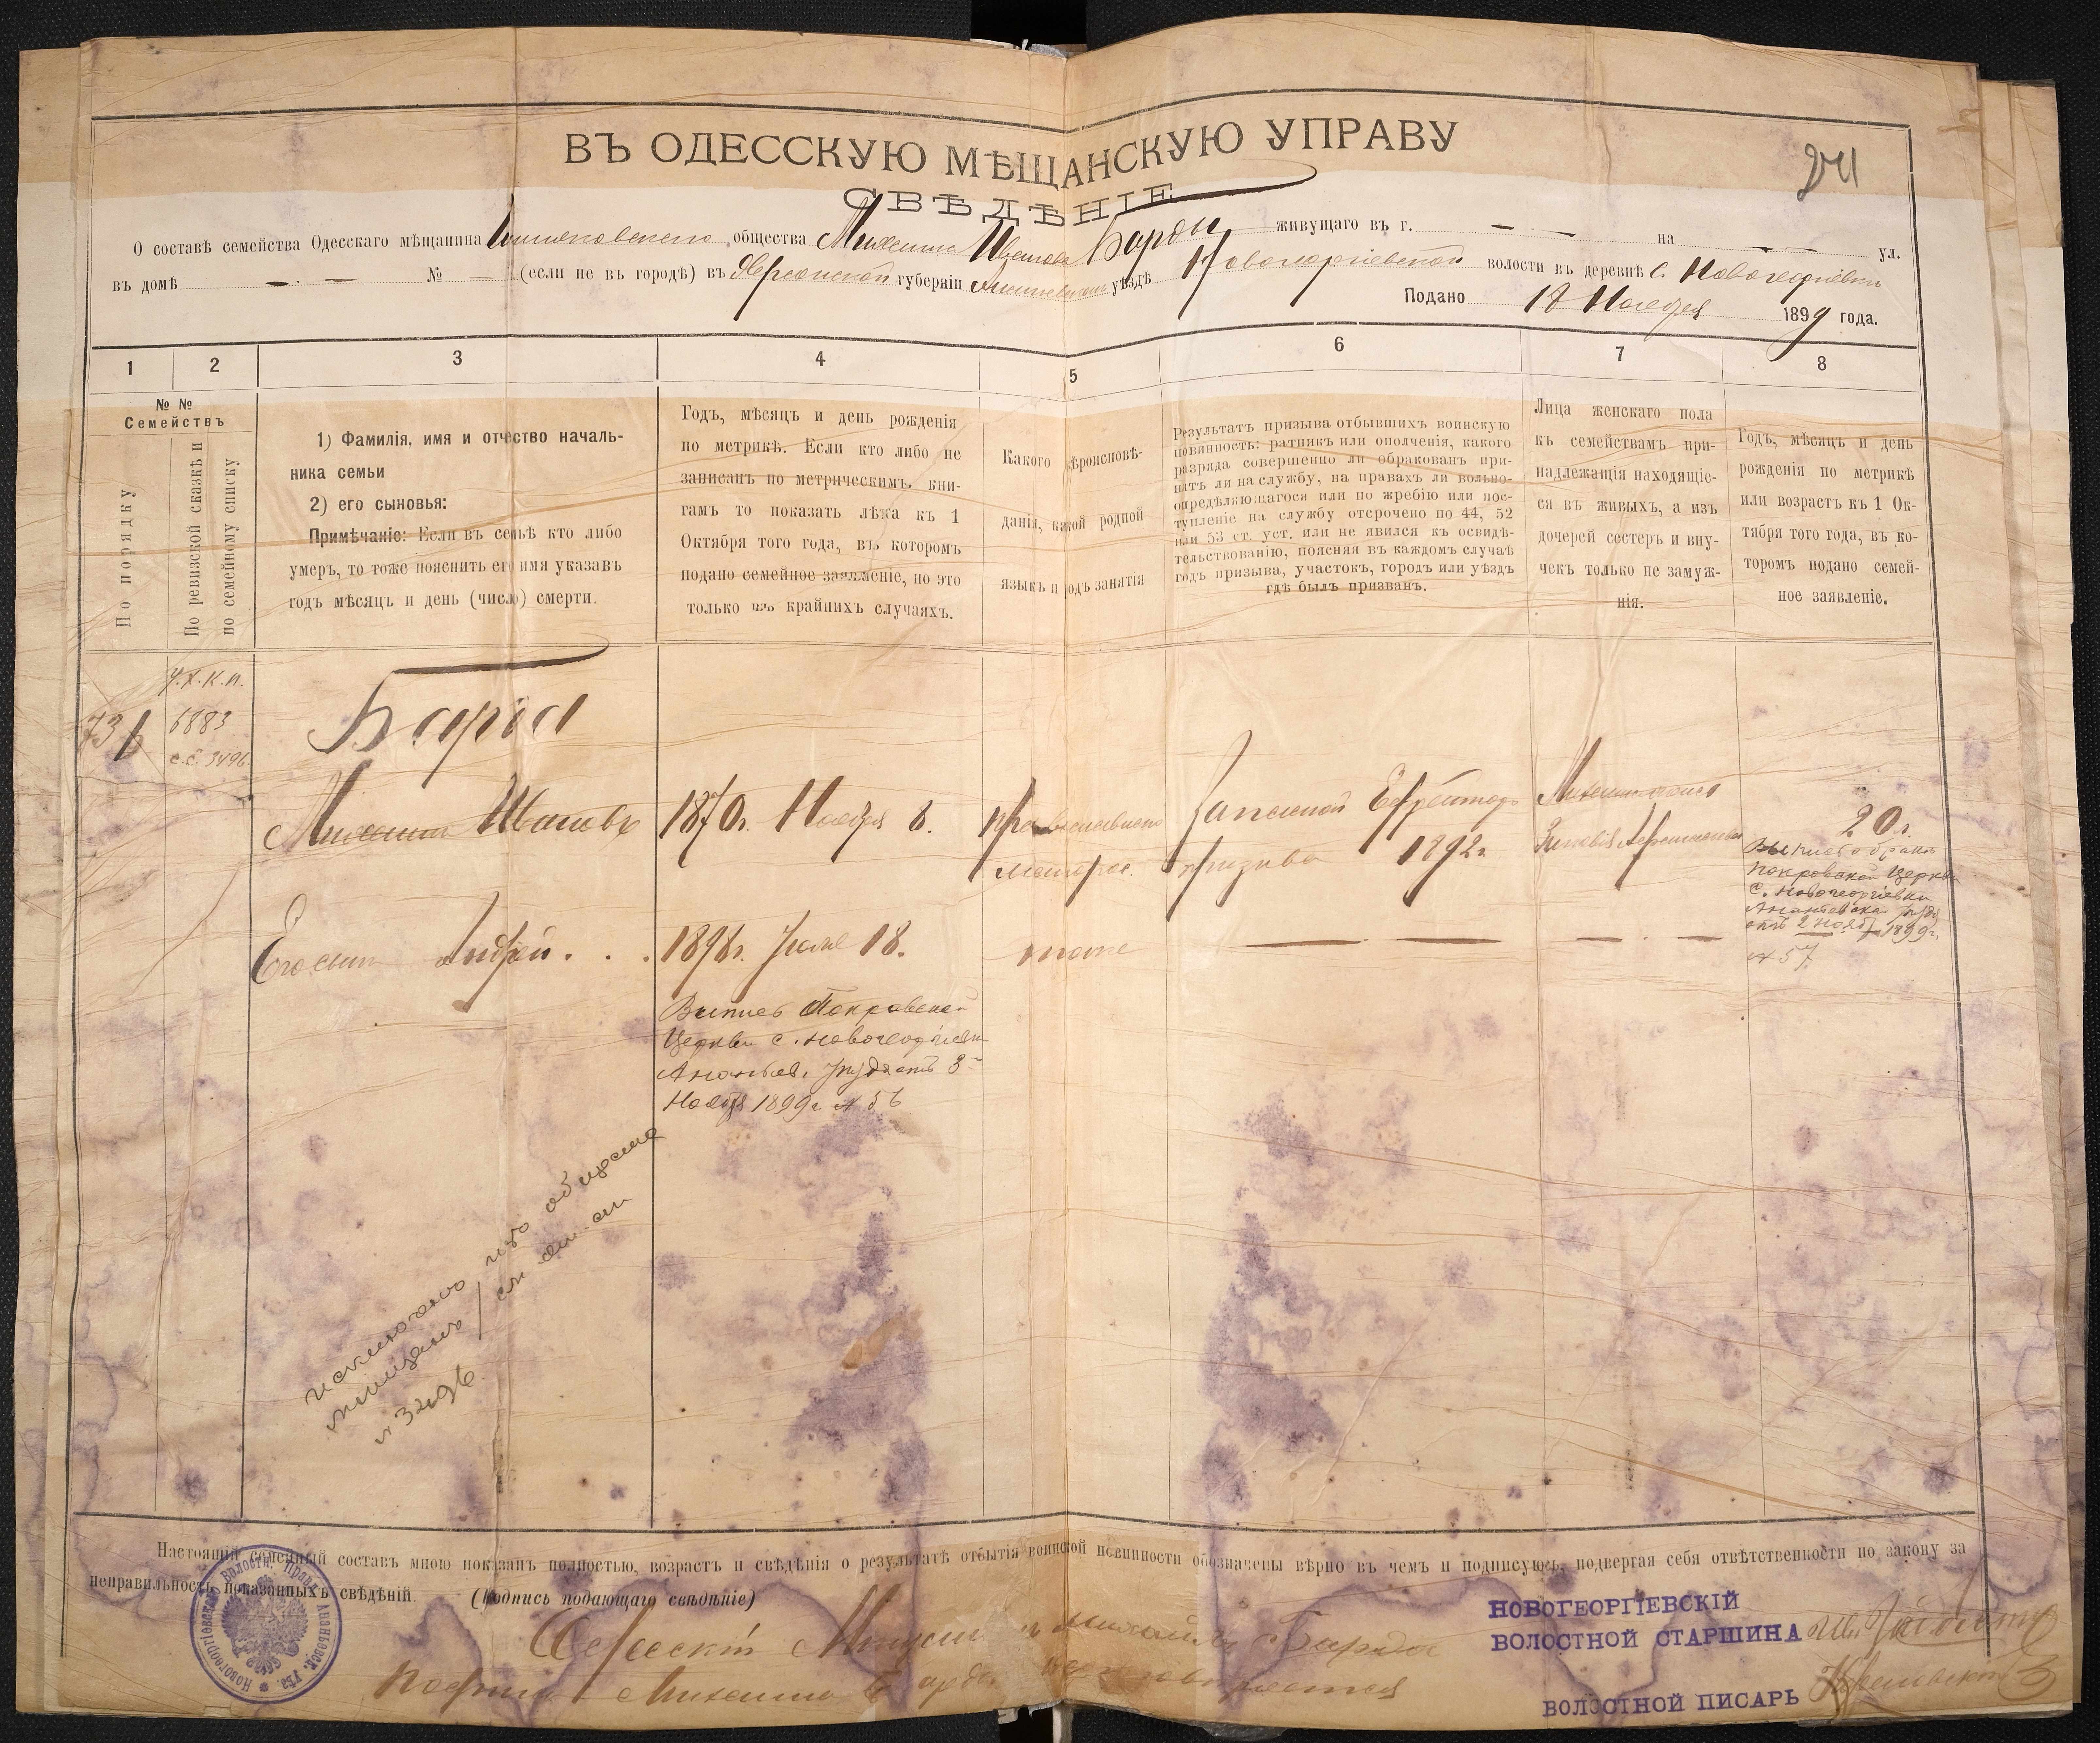 ВЪ ОДЕССКУЮ МѢЩАНСКУЮ УПРАВУ
СВѢДѢНІЕ
О составѣ семейства Одесскаго мѣщанина общества Михаила Иванова живущаго въ г. — на — ул.
въ домѣ — № — (если не въ городѣ) въ Херсонской губерніи уѣздѣ Новогеоргіевской волости въ деревнѣ с. Новогеоргіевки
Подано 18 Ноября 1899 года.
1 2 3 4 5 6 7 8
№ №
Семействъ
По порядку
По ревизской сказкѣ и
по семейному списку
1) Фамилія, имя и отчество началь-
ника семьи
2) его сыновья:
Примѣчаніе: Если въ семьѣ кто либо
умеръ, то тоже пояснить его имя указавъ
годъ мѣсяцъ и день (число) смерти.
Годъ, мѣсяцъ и день рожденія
по метрикѣ. Если кто либо не
записанъ по метрическимъ кни-
гамъ то показать лѣта къ 1
Октября того года, въ которомъ
подано семейное заявленіе, но это
только въ крайнихъ случаяхъ.
Какого вѣроисповѣ-
данія, какой родной
языкъ и родъ занятія
Результатъ призыва отбывшихъ воинскую
повинность: ратникъ или ополченія, какого
разряда совершенно ли обракованъ при-
нятъ ли на службу, на правахъ ли вольно-
опредѣляющагося или по жребію или пос-
тупленіе на службу отсрочено по 44, 52
или 53 ст. уст. или не явился къ освидѣ-
тельствованію, поясняя въ каждомъ случаѣ
годъ призыва, участокъ, городъ или уѣздъ
гдѣ былъ призванъ.
Лица женскаго пола
къ семействамъ при-
надлежащія находящіе-
ся въ живыхъ, а изъ
дочерей сестеръ и вну-
чекъ только не замуж-
нія.
Годъ, мѣсяцъ и день
рожденія по метрикѣ
или возрастъ къ 1 Ок-
тября того года, въ ко-
торомъ подано семей-
ное заявленіе.
6883
с.с. 3496
Михаилъ Ивановъ 1870г. Ноября 8. Запасной Ефрейторъ 20 л.
призыва 1892г.
Выпись о бракѣ
Покровской Церкви
с. Новогеоргіевки
отъ 2 Нояб. 1899г.
№ 57
Его сынъ Андрей . . . 1898г. 18. тоже — — — —
Выпись Покровской
Церкви с. Новогеоргіевки
Ананьев. уѣзда отъ 3
Ноября 1899г № 56
исключено изъ общества
мѣщанъ
Настоящій семейный составъ мною показанъ полностью, возрастъ и свѣдѣнія о результатѣ отбытія воинской повинности обозначены вѣрно въ чемъ и подписуюсь, подвергая себя отвѣтственности по закону за
неправильность показанныхъ свѣдѣній. (Подпись подающаго свѣдѣніе)
Михаилъ
Михаила
НОВОГЕОРГІЕВСКІЙ
ВОЛОСТНОЙ СТАРШИНА
ВОЛОСТНОЙ ПИСАРЬ